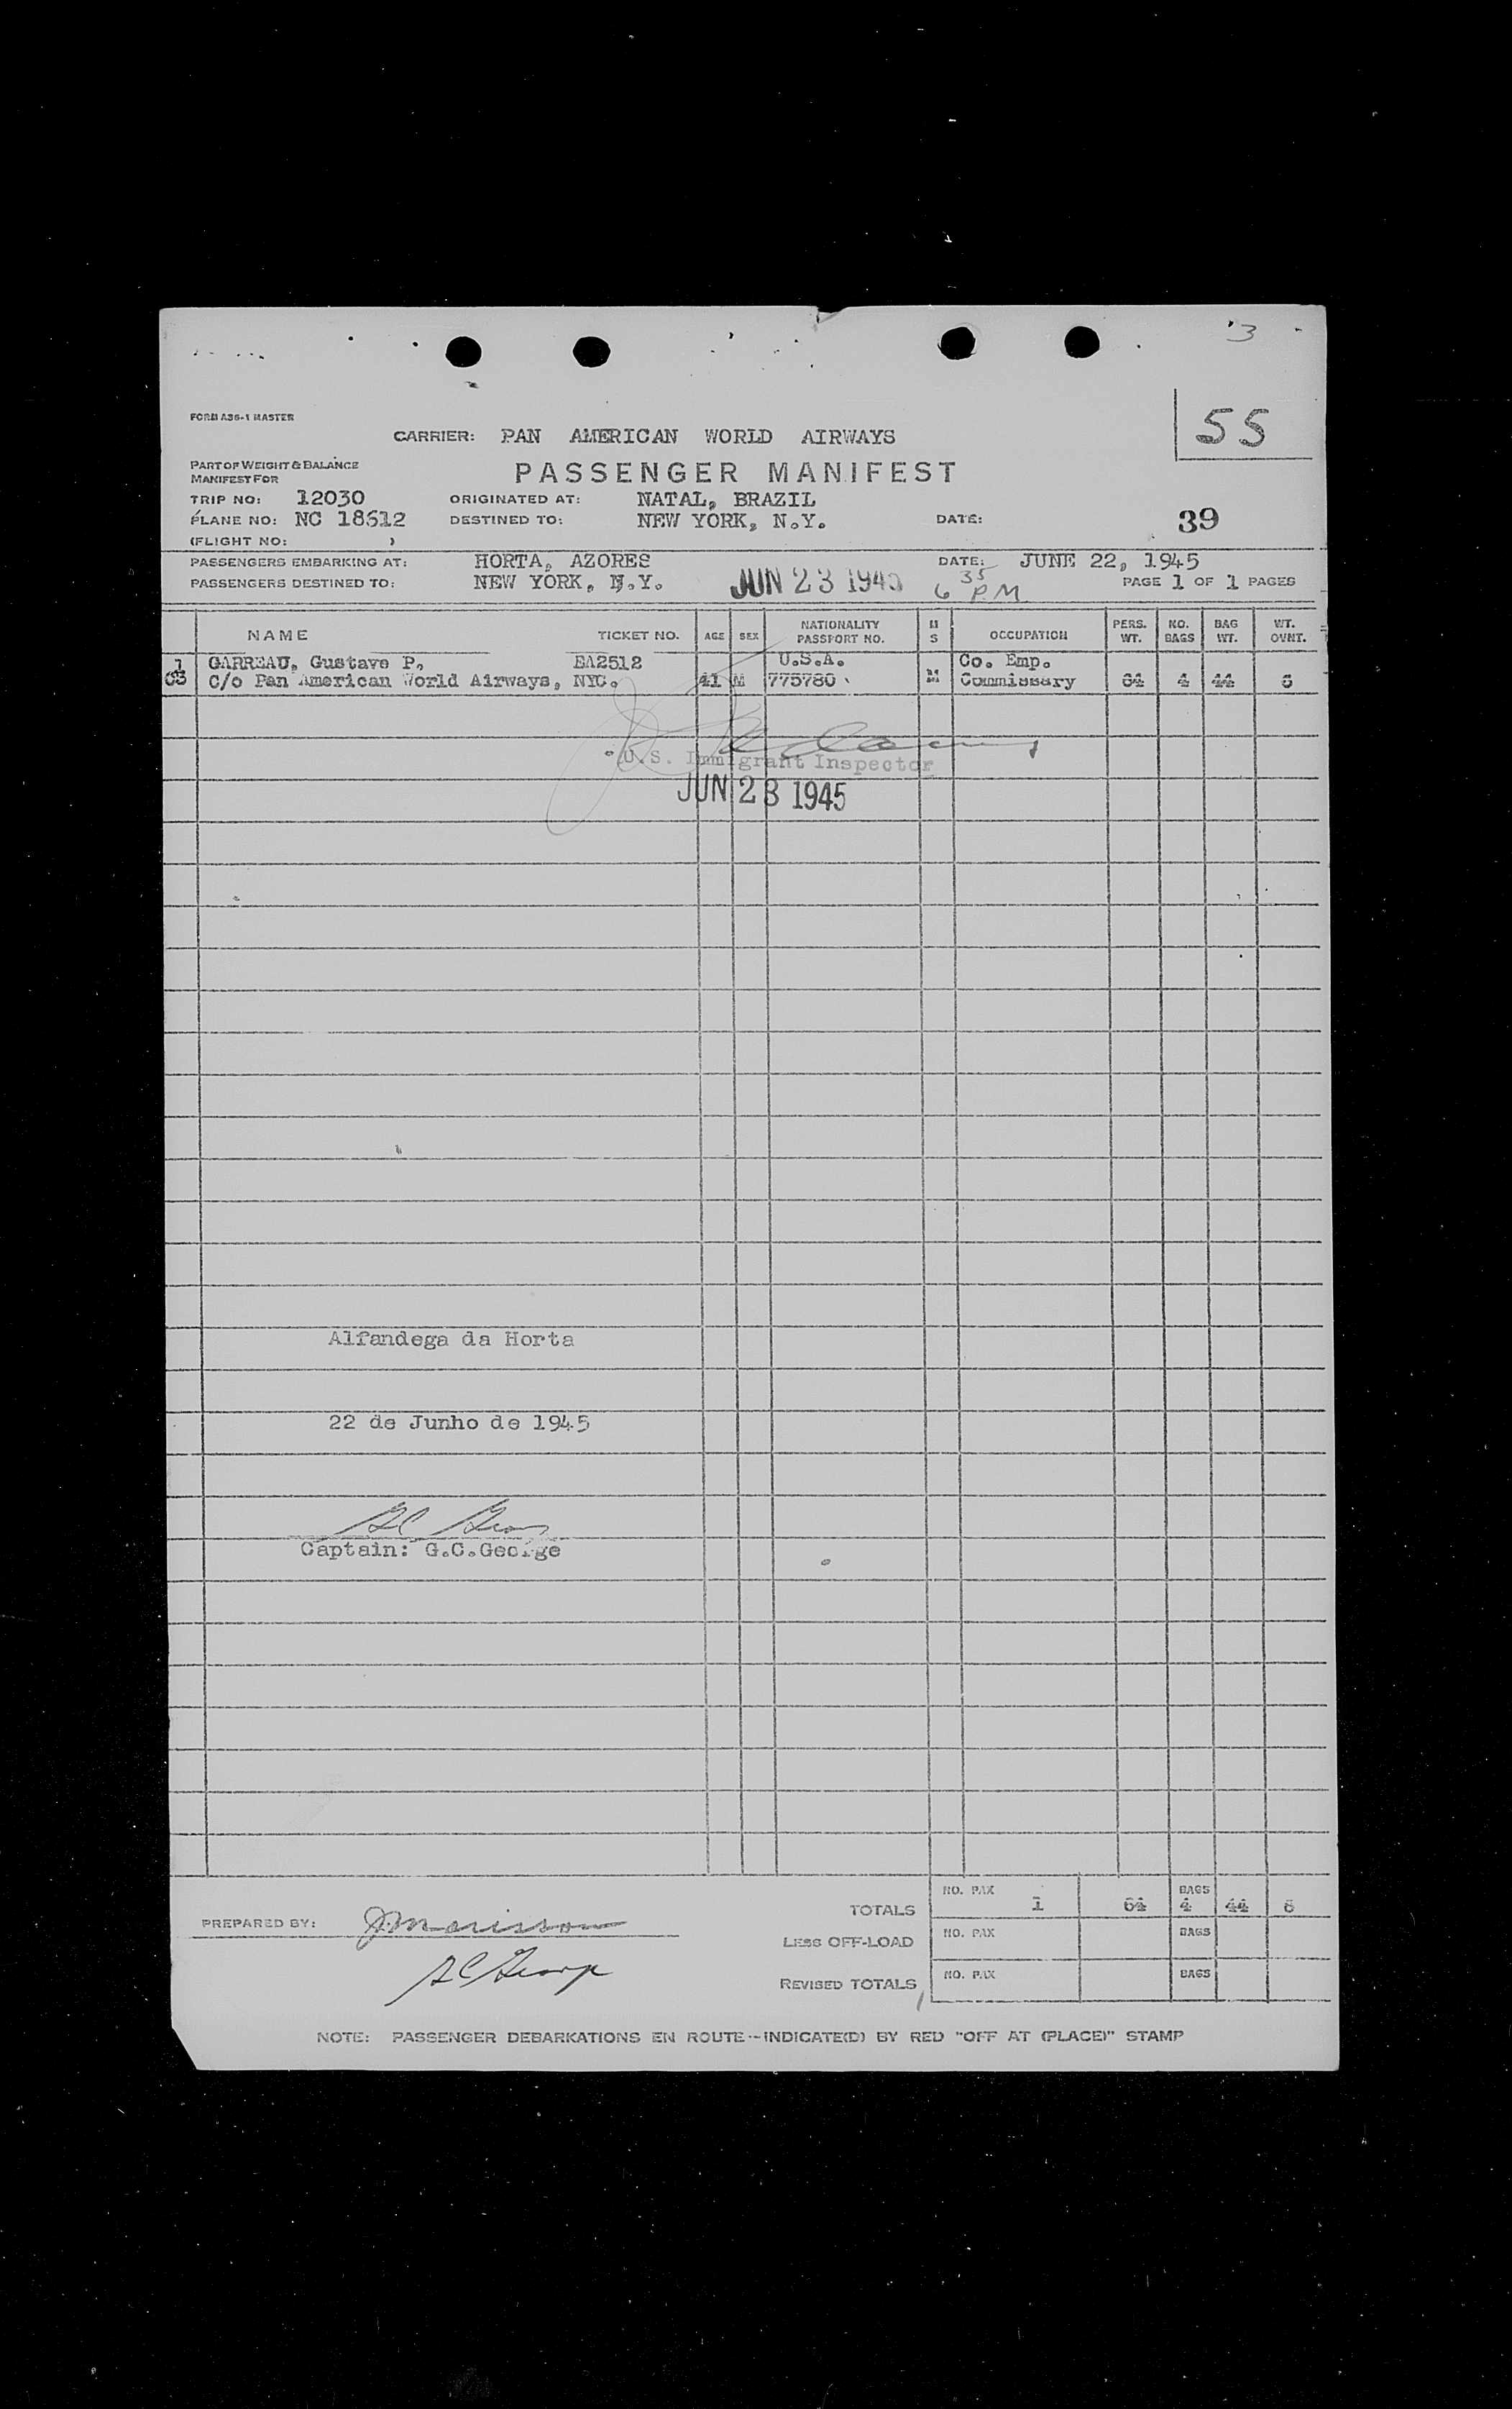 3
55
FORM A36-1 MASTER
CARRIER: PAN AMERICAN WORLD AIRWAYS
PART OF WEIGHT & BALANCE
MANIFEST FOR
PASSENGER MANIFEST
TRIP NO: 12030 ORIGINATED AT: NATAL, BRAZIL
PLANE NO: NC 18612 DESTINED TO: NEW YORK, N.Y. DATE: 39
(FLIGHT NO: )
PASSENGERS EMBARKING AT: HORTA, AZORES DATE: JUNE 22, 1945
PASSENGERS DESTINED TO: NEW YORK, N.Y. JUN 23 1945 6 35 P.M PAGE 1 OF 1 PAGES
NAME TICKET NO. AGE SEX NATIONALITY PASSPORT NO. M S OCCUPATION PERS. WT. NO. BAGS BAG WT. WT. OVNT.
1 GARREAU, Gustave P., EA2512 U.S.A. Co. Emp.
03 C/o Pan American World Airways, NYC. 41 M 775780 M Commissary 64 4 44
U.S. Immigrant Inspector
JUN 23 1945
Alfandega da Horta
22 de Junho de 1945
Captain: G.C.George
NO. PAX BAGS
TOTALS 1 64 4 44
PREPARED BY: J Morisson
LESS OFF-LOAD NO. PAX BAGS
G C George
REVISED TOTALS NO. PAX BAGS
NOTE: PASSENGER DEBARKATIONS EN ROUTE--INDICATE(D) BY RED "OFF AT (PLACE)" STAMP